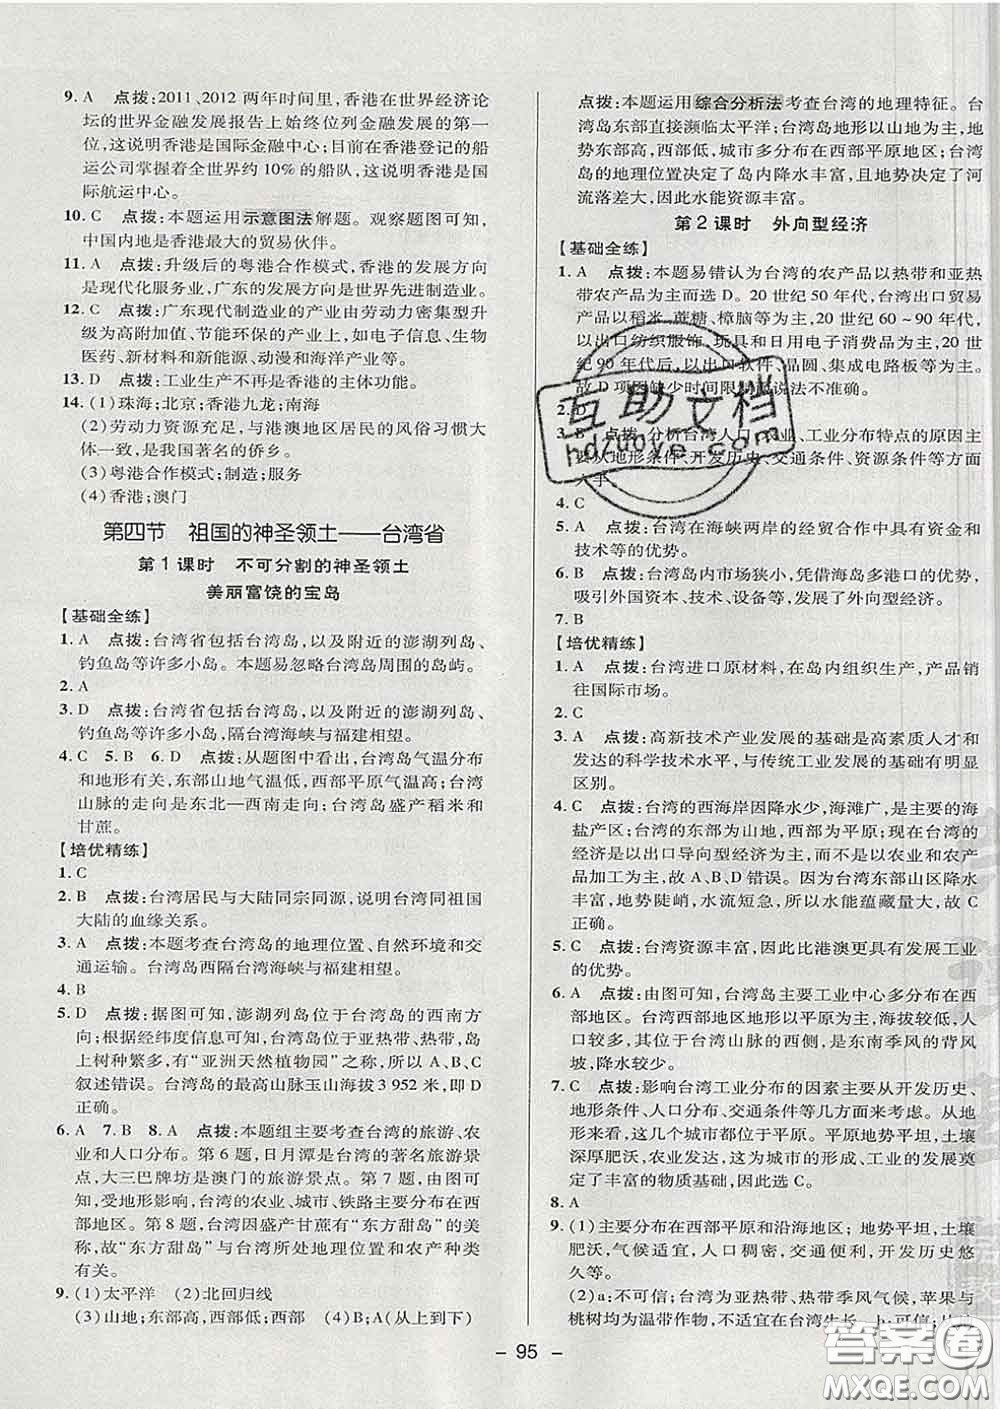 9. A 点拨:2011、2012 两年时间里,香港在世界经济论
坛的世界金融发展报告上始终位列金融发展的第一
位,这说明香港是国际金融中心;目前在香港登记的船
运公司掌握着全世界约 10% 的船队,这说明香港是国
际航运中心。
10. C 点拨:本题运用示意图法解题。观察题图可知,
中国内地是香港最大的贸易伙伴。
11. A 点拨:升级后的粤港合作模式,香港的发展方向
是现代化服务业,广东的发展方向是世界先进制造业。
12. C 点拨:广东现代制造业的产业由劳动力密集型升
级为高附加值、节能环保的产业上,如电子信息、生物
医药、新材料和新能源、动漫和海洋产业等。
13. D 点拨:工业生产不再是香港的主体功能。
14. (1)珠海;北京;香港九龙;南海
(2)劳动力资源充足,与港澳地区居民的风俗习惯大
体一致,是我国著名的侨乡。
(3)粤港合作模式;制造;服务
(4)香港;澳门
第四节 祖国的神圣领土——台湾省
第 1 课时 不可分割的神圣领土
美丽富饶的宝岛
【基础全练】
1. A 点拨:台湾省包括台湾岛,以及附近的澎湖列岛、
钓鱼岛等许多小岛。本题易忽略台湾岛周围的岛屿。
2. A
3. D 点拨:台湾省包括台湾岛,以及附近的澎湖列岛、
钓鱼岛等许多小岛,隔台湾海峡与福建相望。
4. C 5. B 6. D 点拨:从题图中看出,台湾岛气温分布
和地形有关,东部山地气温低,西部平原气温高;台湾
山脉的走向是东北—西南走向;台湾岛盛产稻米和
甘蔗。
【培优精练】
1. C
2. B 点拨:台湾居民与大陆同宗同源,说明台湾同祖国
大陆的血缘关系。
3. A 点拨:本题考查台湾岛的地理位置、自然环境和交
通运输。台湾岛西隔台湾海峡与福建相望。
4. B
5. D 点拨:据图可知,澎湖列岛位于台湾岛的西南方
向;根据经纬度信息可知,台湾岛位于亚热带、热带,岛
上树种繁多,有“亚洲天然植物园”之称,所以 A、B、C
叙述错误。台湾岛的最高山脉玉山海拔 3 952 米,即 D
正确。
6. A 7. B 8. A 点拨:本题组主要考查台湾的旅游、农
业和人口分布。第 6 题,日月潭是台湾的著名旅游景
点,大三巴牌坊是澳门的旅游景点。第 7 题,
受地形影响,台湾的农业、城市、铁路主要分布在西
部地区。第 8 题,台湾因盛产甘蔗而有“东方甜岛”的美
称,故“东方甜岛”与台湾所处地理位置和农产种类
有关。
9. (1)太平洋 (2)北回归线
(3)山地;东部高,西部低;西部 (4)B;A(从上到下)
点拨:本题运用综合分析法考查台湾的地理特征。台
湾岛东部直接濒临太平洋;台湾岛地形以山地为主,地
势东部高,西部低,城市多分布在西部平原地区;台湾
岛的地理位置决定了岛内降水丰富,且地势决定了河
流落差大,因此水能资源丰富。
第 2 课时 外向型经济
【基础全练】
1. A 点拨:本题易错认为台湾的农产品以热带和亚热
带农产品为主而选 D。20 世纪 50 年代,台湾出口贸易
产品以稻米、蔗糖、樟脑等为主,20 世纪 60～90 年代,
以出口纺织服饰、玩具和日用电子消费品为主,20 世
纪 90 年代后,以出口软件、晶圆、集成电路板等为主,
故 D 项因缺少时间限制而说法不准确。
2. D
3. B 点拨:分析台湾人口、农业、工业分布特点的原因主
要从地形、气候、开发历史、交通条件、资源条件等方面
入手。
4. C
5. A 点拨:台湾在海峡两岸的经贸合作中具有资金和
技术等的优势。
6. B 点拨:台湾岛内市场狭小,凭借海岛多港口的优势,
吸引外国资本、技术、设备等,发展了外向型经济。
7. B
【培优精练】
1. A 点拨:台湾进口原材料,在岛内组织生产,产品销
往国际市场。
2. C
3. A 点拨:高新技术产业发展的基础是高素质人才和
发达的科学技术水平,与传统工业发展的基础有明显
区别。
4. C 点拨:台湾的西海岸因降水少,海滩广,是主要的海
盐产区;台湾的东部为山地,西部为平原;现在台湾的
经济是以出口导向型经济为主,而不是以农业和农产
品加工为主,故 A、B、D 错误。因为台湾东部山区降水
丰富,地势陡峭,水流湍急,所以水能蕴藏量大,故 C
正确。
5. C 点拨:台湾资源丰富,因此比港澳更具有发展工业
的优势。
6. A 点拨:由图可知,台湾岛主要工业中心多分布在西
部地区。台湾西部地区地形以平原为主,海拔较低,人
口较多,其位于台湾山脉的西侧,是东南季风的背风
坡,降水较少。
7. C 点拨:影响台湾工业分布的因素主要从开发历史、
地形条件、人口分布、交通条件等方面来分析。从地
形来看,这几个城市都位于平原。平原地势平坦,土壤
深厚肥沃,农业发达,这为城市的形成、工业的发展奠
定了丰富的物质基础,故选 C。
8. A
9. (1)主要分布在西部平原和沿海地区;地势平坦,土壤
肥沃,气候适宜,人口稠密,交通便利,开发历史悠
久等。
(2)a:不可信;台湾为亚热带、热带季风气候,苹果与
桃树均为温带作物,不适宜在台湾生长 b:可信;
- 95 -
互助文档
hdzuoye.com
答案圈
MXQE.COM